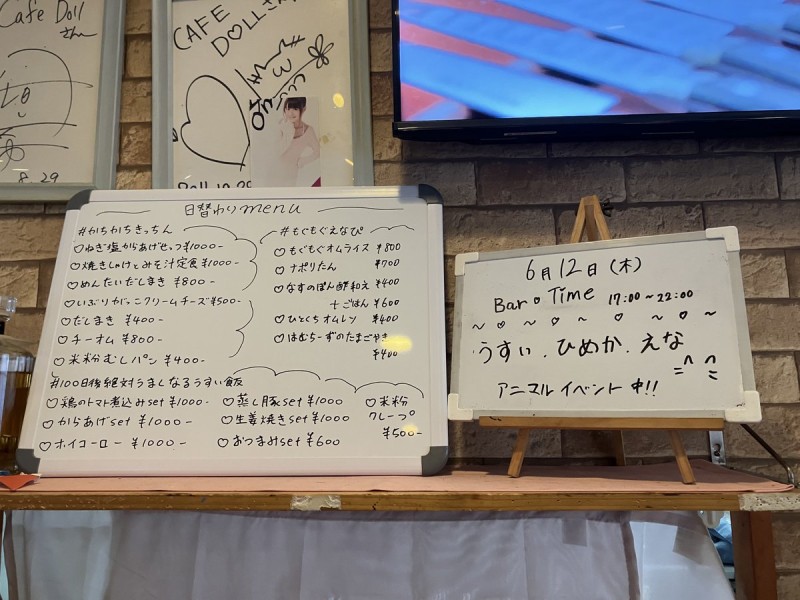 Cafe Doll
さんへ
8.29
CAFE
DOLLさんへ
日替わりmenu
#かちかちきっちん
♡ねぎ塩からあげせっつ¥1000-
♡焼きしゃけとみそ汁定食¥1000-
♡めんたいだしまき ¥800-
♡いぶりがっこクリームチーズ¥500-
♡だしまき ¥400-
♡チーオム ¥800-
♡米粉むしパン ¥400-
#もぐもぐえなぴ
♡もぐもぐオムライス ¥800
♡ナポリたん ¥700
♡なすのぽん酢和え ¥400
+ごはん ¥600
♡ひとくちオムレツ ¥400
♡はむちーずのたまごやき
¥400
#100日後絶対うまくなるうすい飯
♡鶏のトマト煮込みset ¥1000-
♡からあげset ¥1000-
♡ホイコーロー ¥1000-
♡蒸し豚set ¥1000
♡生姜焼きset ¥1000
♡おつまみset ¥600
♡米粉
クレープ
¥500-
6月12日(木)
Bar♡Time 17:00~22:00
うすい.ひめか.えな
アニマルイベント中!!